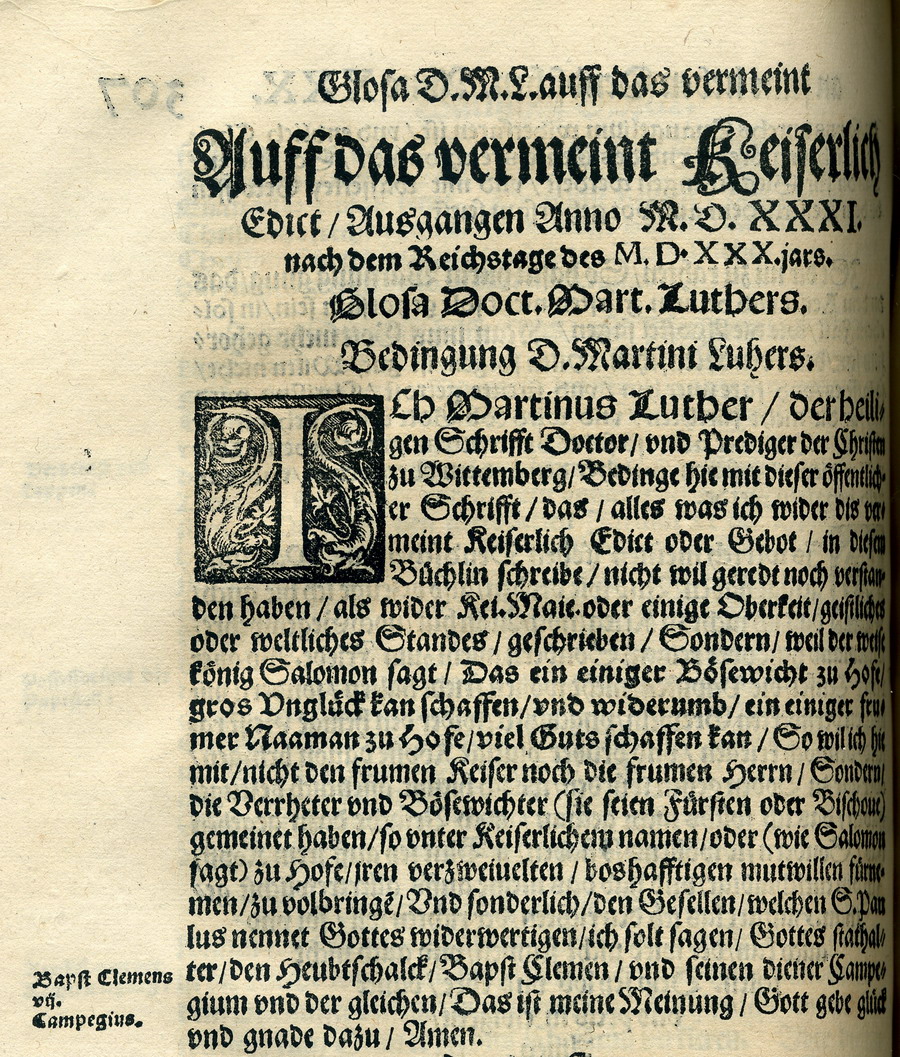 Glosa D.M.L.auff das vermeint
Auff das vermeint Keiserlich
Edict / Ausgangen Anno M. D. XXXI.
nach dem Reichstage des M. D. XXX.jars.
Glosa Doct. Mart. Luthers.
Bedingung D. Martini Luhers.
ICh Martinus Luther / der heili⸗
gen Schrifft Doctor/ vnd Prediger der Christen
zu Wittemberg/ Bedinge hie mit dieser öffentlich⸗
er Schrifft / das / alles was ich wider dis ver⸗
meint Keiserlich Edict oder Gebot / in diesem
Büchlin schreibe / nicht wil geredt noch verstan⸗
den haben / als wider Kei. Maie. oder einige Oberkeit/geistliches
oder weltliches Standes / geschrieben / Sondern/ weil der weise
könig Salomon sagt / Das ein einiger Bösewicht zu Hofe/
gros Vnglück kan schaffen/vnd widerumb/ ein einiger fru⸗
mer Naaman zu Hofe/viel Guts schaffen kan / So wil ich hie
mit/nicht den frumen Keiser noch die frumen Herrn / Sondern/
die Verrheter vnd Bösewichter (sie seien Fürsten oder Bischoue)
gemeinet haben/so vnter Keiserlichem namen/oder (wie Salomon
sagt) zu Hofe/jren verzweiuelten / boshafftigen mutwillen fürne⸗
men/zu volbringē/ Vnd sonderlich/den Gesellen/welchen S. Pau
lus nennet Gottes widerwertigen/ich solt sagen/ Gottes stathal⸗
ter/den Heubtschalck/Bapst Clemen / vnd seinen diener Campe⸗
gium vnd der gleichen/ Das ist meine Meinung / Gott gebe glück
vnd gnade dazu / Amen.
Bapst Clemens
vij.
Campegius.